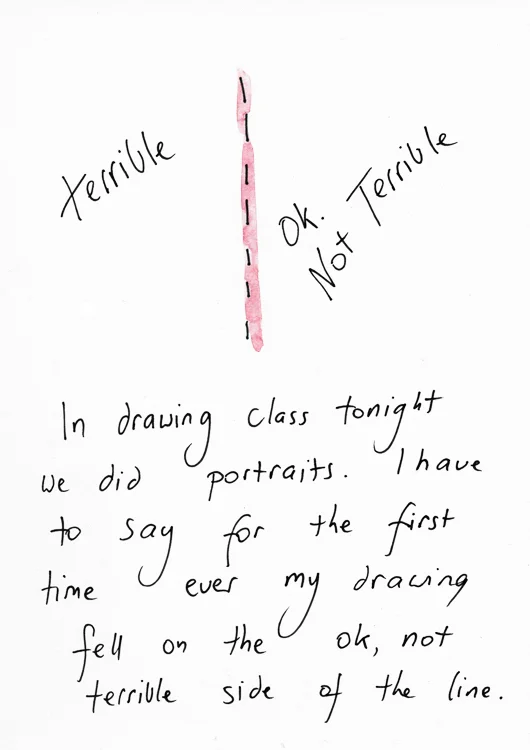 terrible
Ok.
Not Terrible
In drawing class tonight
we did portraits. I have
to say for the first
time ever my drawing
fell on the ok, not
terrible side of the line.